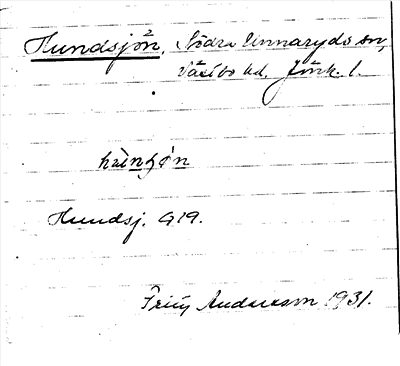 Hundsjön, Södra Unnaryds sn,
Västbo hd, Jönk. l.
Hundsj. G19.
Frity Andersson 1931.